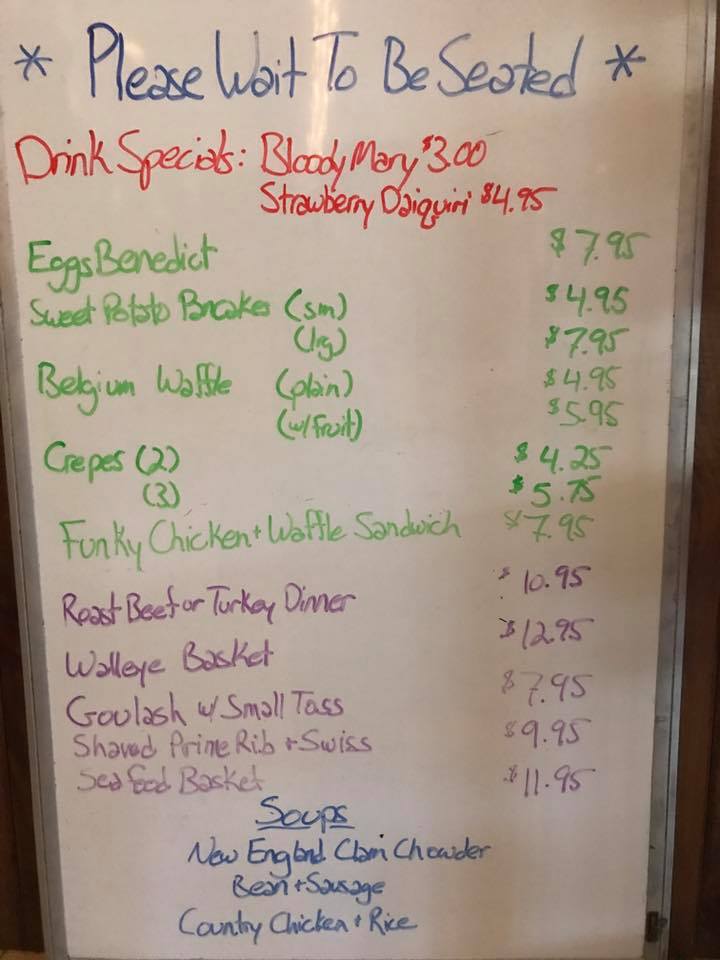 * Please Wait To Be Seated *
Drink Specials: Bloody Mary $3.00
Strawberry Daiquiri $4.95
Eggs Benedict $7.95
Sweet Potato Pancakes (sm) $4.95
(lrg) $7.95
Belgium Waffle (plain) $4.95
(w/fruit) $5.95
Crepes (2) $4.25
(3) $5.75
Funky Chicken + Waffle Sandwich $7.95
Roast Beef or Turkey Dinner $10.95
Walleye Basket $12.95
Goulash w/ Small Toss $7.95
Shaved Prime Rib + Swiss $9.95
Seafood Basket $11.95
Soups
New England Clam Chowder
Bean + Sausage
Country Chicken + Rice